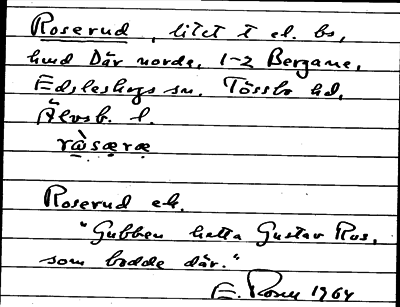 Roserud, litet t el. bs,
hmd Där norde, 1-2 Bergane,
Edsleskogs sn. Tössbo hd,
Älvsb. l.
Roserud ek.
"Gubben hette Gustav Ros,
som bodde där."
1964